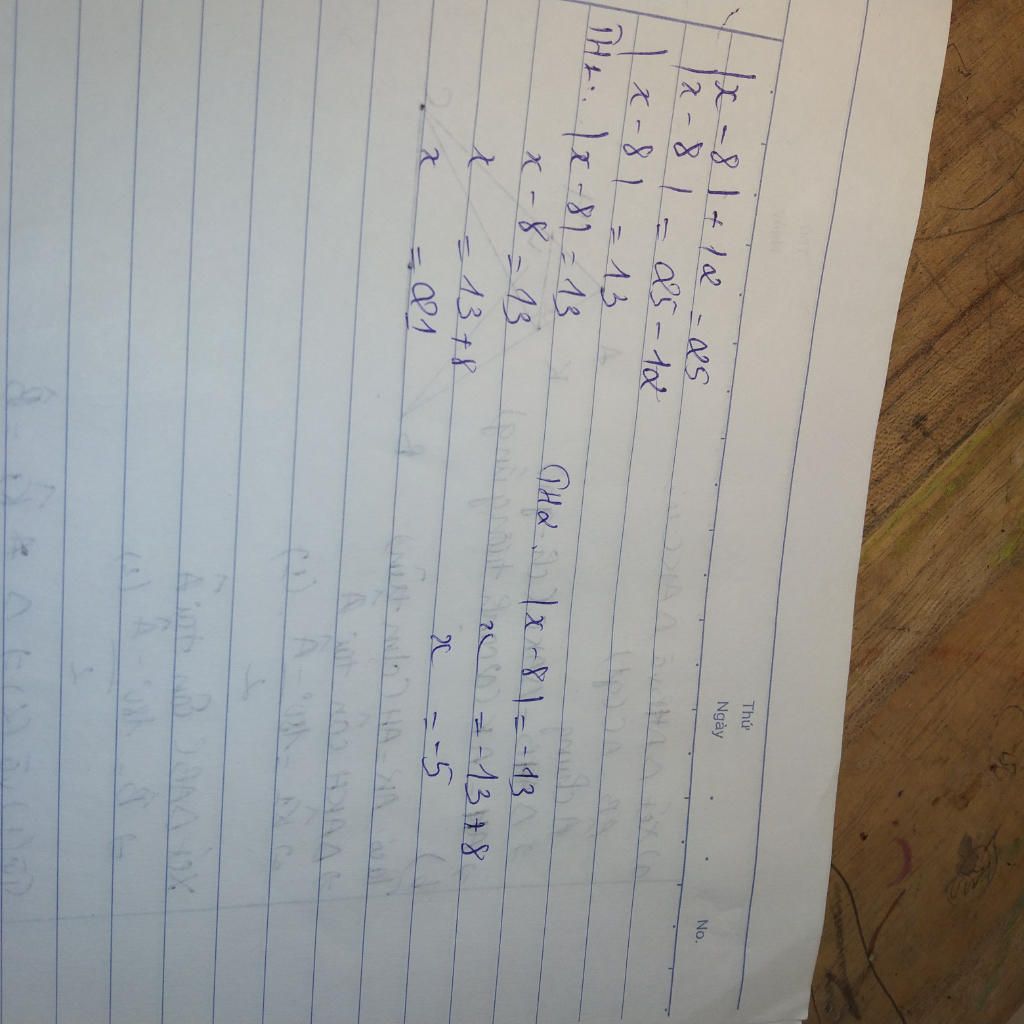 Thứ
Ngày . . No.
|x - 8| + 12 = 25
|x - 8| = 25 - 12
|x - 8| = 13
TH1: |x - 8| = 13
x - 8 = 13
x = 13 + 8
x = 21
TH2: |x - 8| = -13
x = -13 + 8
x = -5